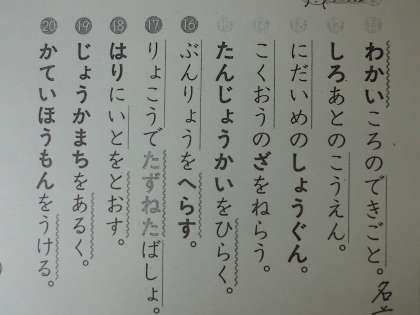 わかいころのできごと。
しろあとのこうえん。
にだいめのしょうぐん。
こくおうのざをねらう。
たんじょうかいをひらく。
⑯ぶんりょうをへらす。
⑰りょこうでたずねたばしょ。
⑱はりにいとをとおす。
⑲じょうかまちをあるく。
⑳かていほうもんをうける。